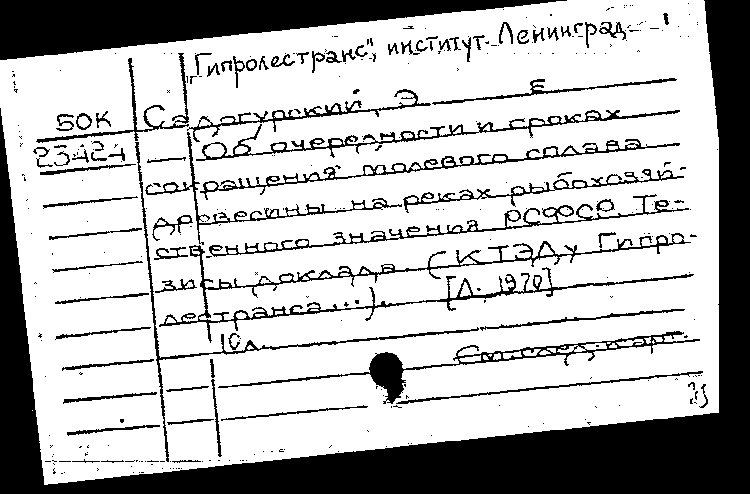 „Гипролестранс", институт. Ленинград
БОК Садагурский, Э Б
23424 Об очередности и сроках
сокращения молевого сплава
древесины на реках рыбохозяй-
ственного значения РСФСР. Те-
зисы доклада (К ТЭДу Гипро-
лестранса...). [Л., 1970]
10л.
См. след. карт.